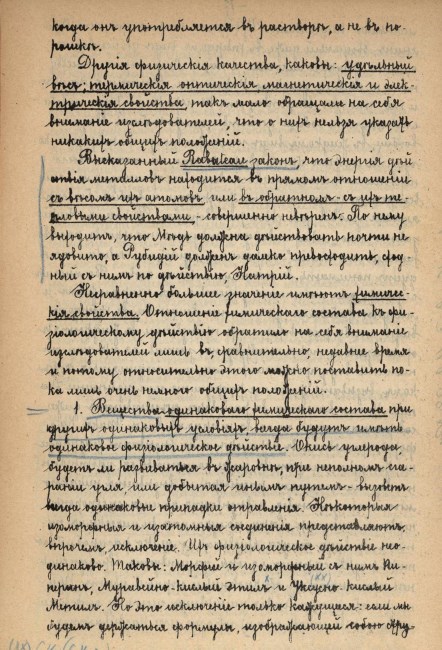 когда онъ употребляется въ растворѣ, а не въ по-
рошкѣ.
Другія физическія качества, каковы: удѣльный
вѣсъ; термическія оптическія, магнетическія и элек-
трическія свойства, такъ мало обращали на себя
вниманіе изслѣдователей, что о нихъ нельзя указать
никакихъ общихъ положеній.
Высказанный законъ, что энергія дѣй
ствія металловъ находится въ прямомъ отношеніи
съ вѣсомъ ихъ атомовъ или въ обратномъ съ ихъ те-
пловыми свойствами, - совершенно невѣренъ. По нему
выходитъ, что Мѣдь должна дѣйствовать почти не
ядовито, а Рубидій долженъ далеко превосходить, сход-
ный съ нимъ по дѣйствію, Натрій.
Несравненно большее значеніе имѣютъ химичес-
кія свойства. Отношеніе химическаго состава къ фи-
зіологическому дѣйствію обратило на себя вниманіе
изслѣдователей лишь въ, сравнительно, недавнее время
и потому относительно этого можно поставить по-
ка лишь очень немного общихъ положеній.
1. Вещества одинаковаго химическаго состава при
другихъ одинаковыхъ условіяхъ, всегда будутъ имѣть
одинаковое физіологическое дѣйствіе. Окись углерода,
будетъ ли развиваться въ жаровнѣ, при неполномъ сго-
раніи угля или добытая инымъ путемъ - вызоветъ
всегда одинаковые припадки отравленія. Нѣкоторыя
изоморфныя и изатомныя соединенія представляютъ,
впрочемъ, исключеніе. Ихъ физіологическое дѣйствіе нео-
динаково. Таковы: Морфій и изоморфный съ нимъ Пи-
перинъ, Муравьино-кислый этилъ и Уксусно-кислый
Метилъ. Но это исключеніе только кажущееся: если мы
будемъ держаться формулы, изображающей собою